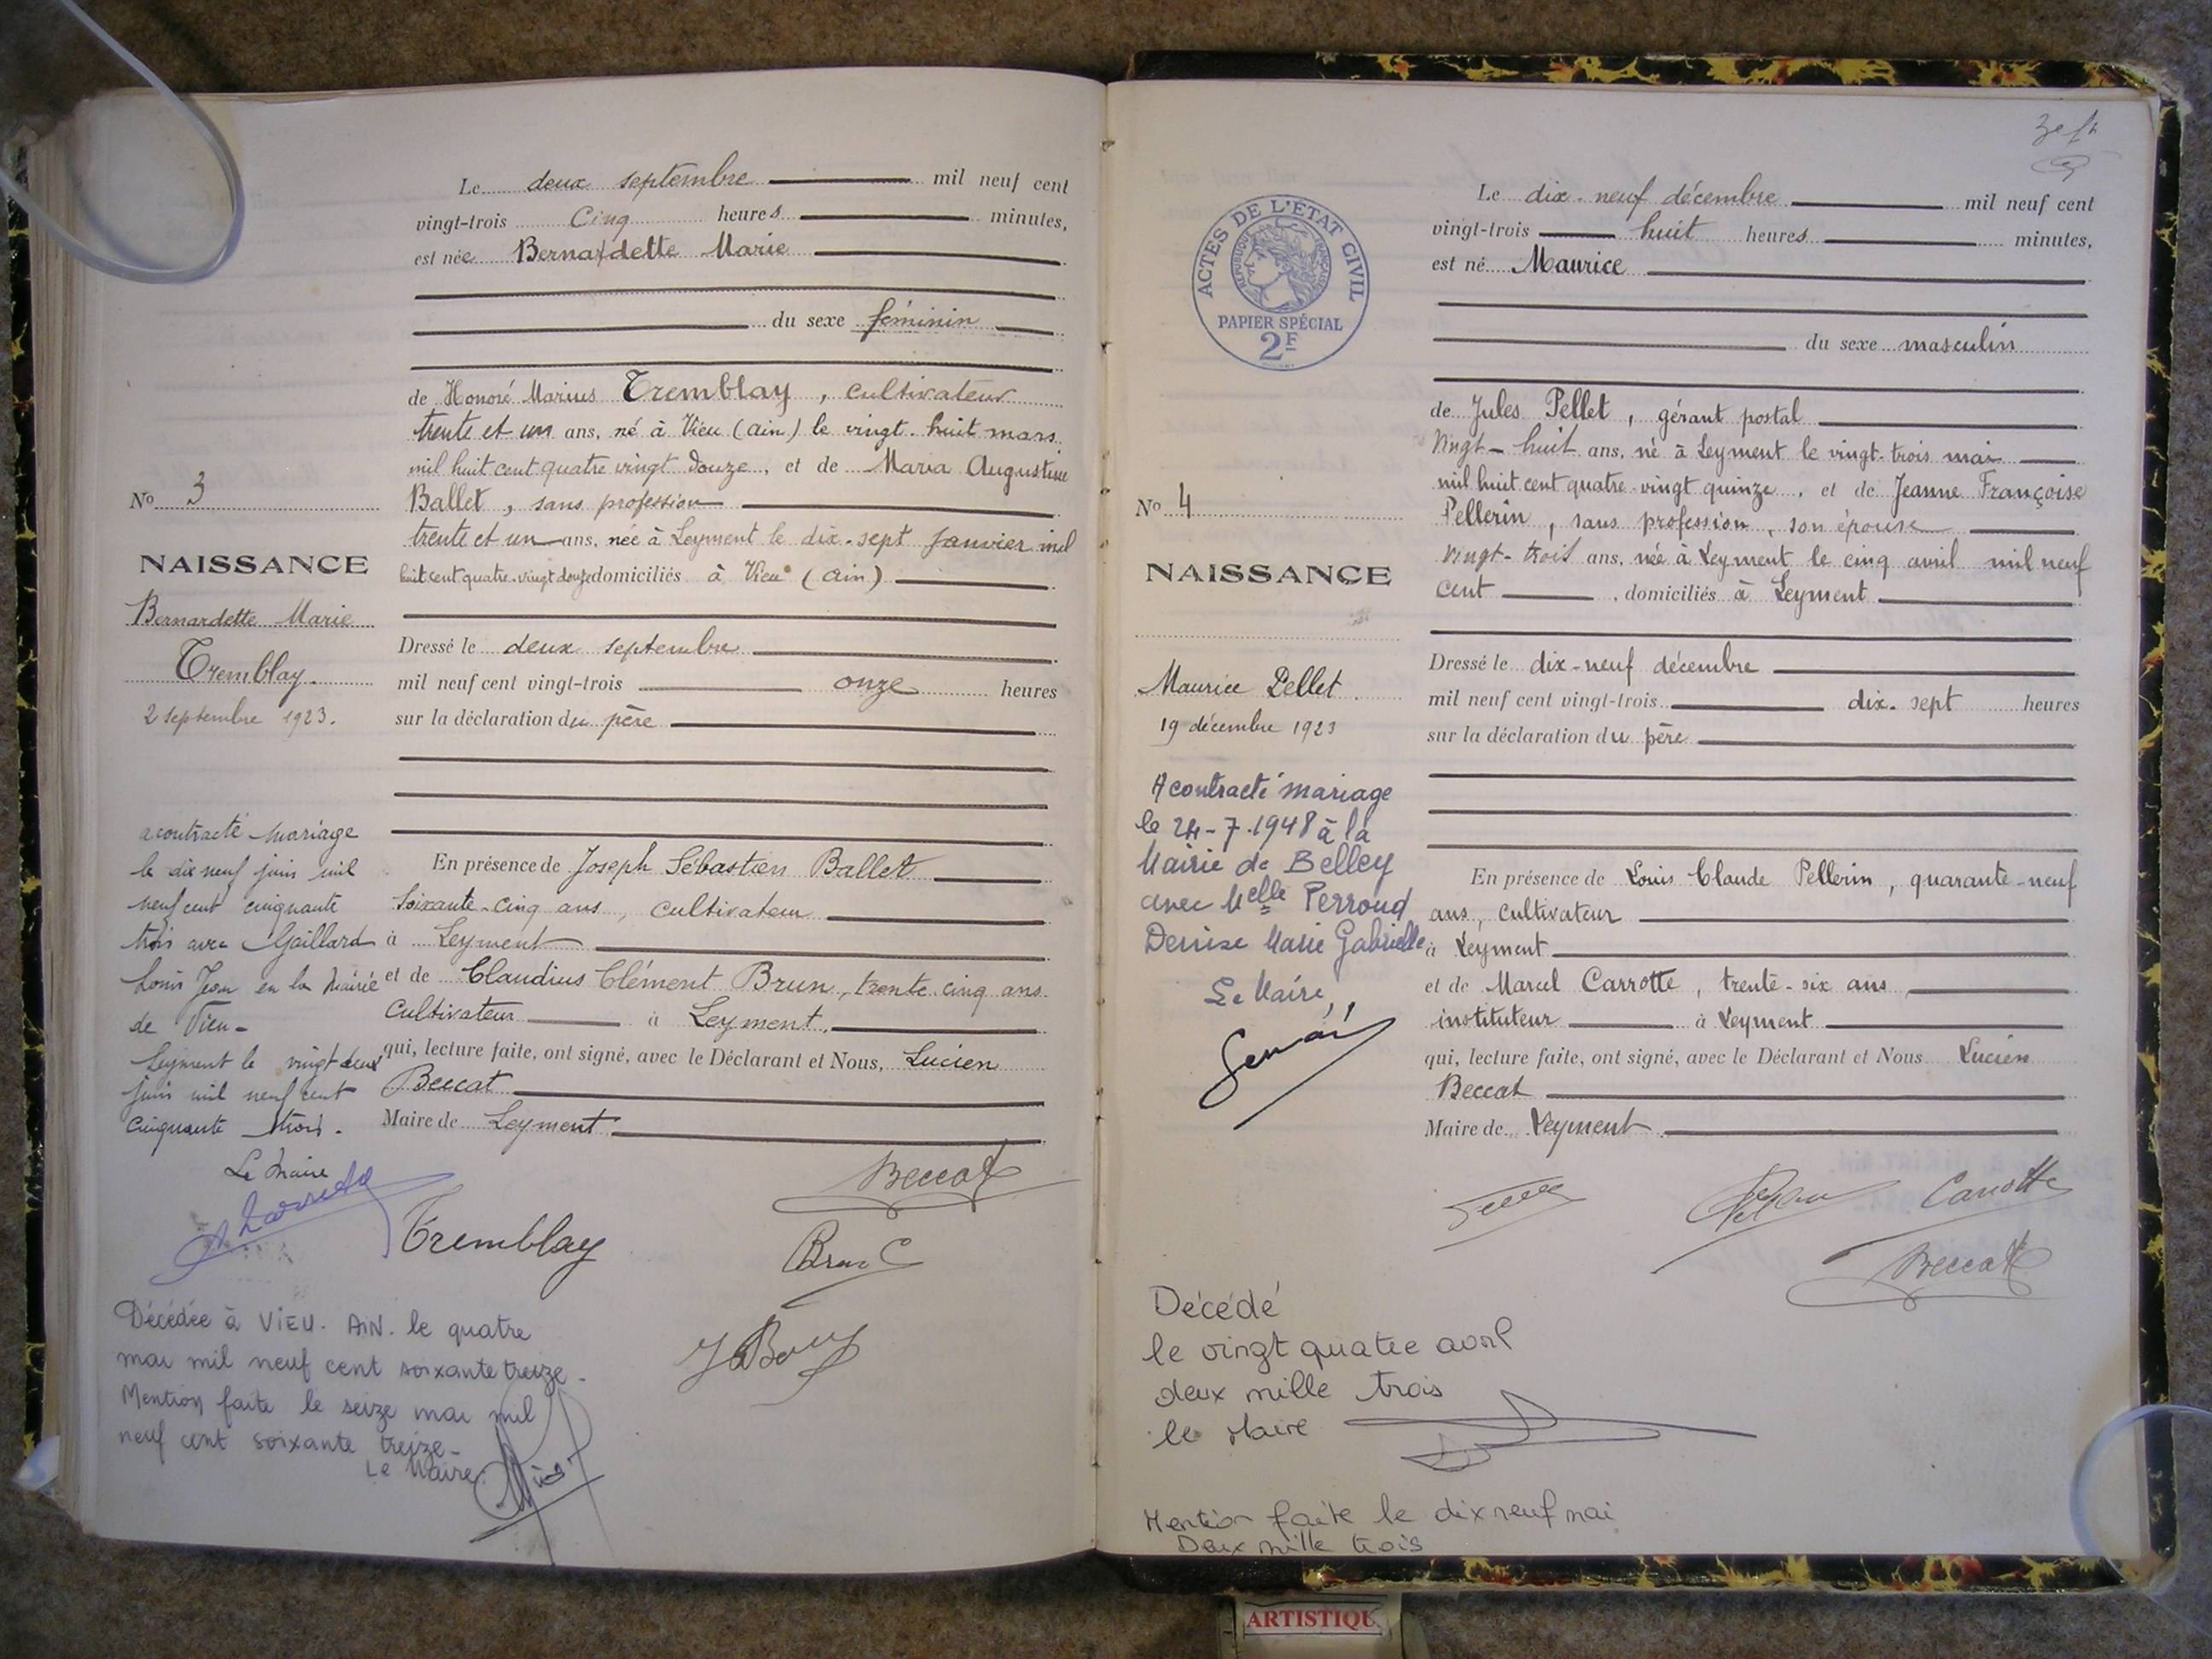 Le deux septembre mil neuf cent
vingt-trois Cinq heures minutes,
est née Bernardette Marie
du sexe féminin
de Honoré Marius Tremblay, cultivateur
trente et un ans, né à Vieu (Ain) le vingt-huit mars
mil huit cent quatre vingt douze, et de Maria Augustine
Ballet, sans profession
trente et un ans, née à Leyment le dix-sept janvier mil
huit cent quatre-vingt douze domiciliés à Vieu (Ain)
Dressé le deux septembre
mil neuf cent vingt-trois onze heures
sur la déclaration du père
En présence de Joseph Sébastien Ballet
Soixante-cinq ans, cultivateur
à Leyment
et de Claudius Clément Brun, trente cinq ans
Cultivateur à Leyment,
qui, lecture faite, ont signé, avec le Déclarant et Nous, Lucien
Beccat
Maire de Leyment
Beccat
Tremblay
Brun C
No 3
NAISSANCE
Bernardette Marie
Tremblay.
2 septembre 1923.
a contracté mariage
le dix neuf juin mil
neuf cent cinquante
trois avec Gaillard
Louis Jean en la Mairie
de Vieu-
Leyment le vingt deux
juin mil neuf cent
cinquante trois.
Le Maire
Décédée à VIEU. AIN. le quatre
mai mil neuf cent soixante treize-
Mention faite le seize mai mil
neuf cent soixante treize-
Le Maire
ACTES DE L'ETAT CIVIL
REPUBLIQUE FRANÇAISE
PAPIER SPÉCIAL
2F
Le dix-neuf décembre mil neuf cent
vingt-trois huit heures minutes,
est né Maurice
du sexe masculin
de Jules Pellet, gérant postal
vingt-huit ans, né à Leyment le vingt-trois mai
mil huit cent quatre-vingt quinze, et de Jeanne Françoise
Pellerin, sans profession, son épouse
vingt-trois ans, née à Leyment le cinq avril mil neuf
cent, domiciliés à Leyment
Dressé le dix-neuf décembre
mil neuf cent vingt-trois dix-sept heures
sur la déclaration du père
En présence de Louis Claude Pellerin, quarante-neuf
ans, cultivateur
à Leyment
et de Marcel Carrotte, trente-six ans
instituteur à Leyment
qui, lecture faite, ont signé, avec le Déclarant et Nous Lucien
Beccat
Maire de Leyment
Carrotte
Beccat
No 4
NAISSANCE
Maurice Pellet
19 décembre 1923
A contracté mariage
le 24-7-1948 à la
Mairie de Belley
avec Melle Perroud
Denise Marie Gabrielle
Le Maire,
Décédé
le vingt quatre avril
deux mille trois
le Maire
Mention faite le dix neuf mai
Deux mille trois
ARTISTIQU